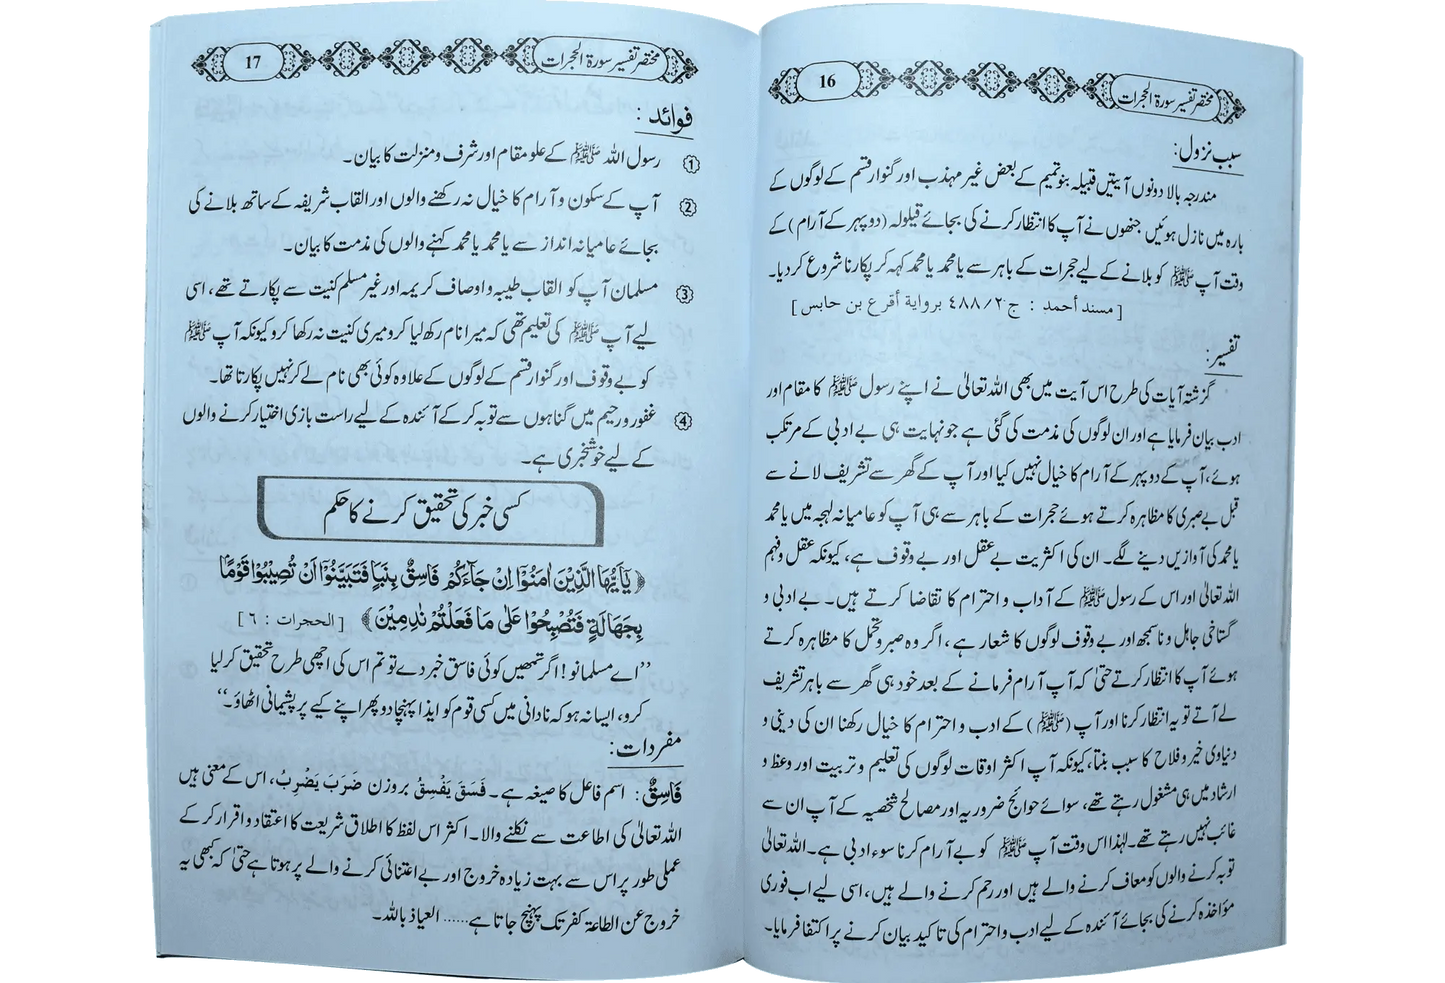 16
مختصر تفسیر سورۃ الحجرات
سبب نزول:
مندرجہ بالا دونوں آیتیں قبیلہ بنو تمیم کے بعض غیر مہذب اور گنوار قسم کے لوگوں کے
بارہ میں نازل ہوئیں جنھوں نے آپ کا انتظار کرنے کی بجائے قیلولہ (دوپہر کے آرام) کے
وقت آپ ﷺ کو بلانے کے لیے حجرات کے باہر سے یا محمد یا محمد کہہ کر پکارنا شروع کر دیا۔
[مسند أحمد : ج٤٨٨/٢٠ برواية أقرع بن حابس]
تفسیر:
گزشتہ آیات کی طرح اس آیت میں بھی اللہ تعالیٰ نے اپنے رسول ﷺ کا مقام اور
ادب بیان فرمایا ہے اور ان لوگوں کی مذمت کی گئی ہے جو نہایت ہی بے ادبی کے مرتکب
ہوئے، آپ کے دوپہر کے آرام کا خیال نہیں کیا اور آپ کے گھر سے تشریف لانے سے
قبل بے صبری کا مظاہرہ کرتے ہوئے حجرات کے باہر سے ہی آپ کو عامیانہ لہجہ میں یا محمد
یا محمد کی آوازیں دینے لگے۔ ان کی اکثریت بے عقل اور بے وقوف ہے، کیونکہ عقل و فہم
اللہ تعالیٰ اور اس کے رسول ﷺ کے آداب و احترام کا تقاضا کرتے ہیں۔ بے ادبی و
گستاخی جاہل و ناسمجھ اور بے وقوف لوگوں کا شعار ہے، اگر وہ صبر و تحمل کا مظاہرہ کرتے
ہوئے آپ کا انتظار کرتے حتیٰ کہ آپ آرام فرمانے کے بعد خود ہی گھر سے باہر تشریف
لے آتے تو یہ انتظار کرنا اور آپ (ﷺ) کے ادب و احترام کا خیال رکھنا ان کی دینی و
دنیاوی خیر و فلاح کا سبب بنتا، کیونکہ آپ اکثر اوقات لوگوں کی تعلیم و تربیت اور وعظ و
ارشاد میں ہی مشغول رہتے تھے، سوائے حوائج ضروریہ اور مصالح شخصیہ کے آپ ان سے
غائب نہیں رہتے تھے۔ لہٰذا اس وقت آپ ﷺ کو بے آرام کرنا سوء ادبی ہے۔ اللہ تعالیٰ
توبہ کرنے والوں کو معاف کرنے والے ہیں اور رحم کرنے والے ہیں، اسی لیے اب فوری
مؤاخذہ کرنے کی بجائے آئندہ کے لیے ادب و احترام کی تاکید بیان کرنے پر اکتفا فرمایا۔
17
مختصر تفسیر سورۃ الحجرات
فوائد:
① رسول اللہ ﷺ کے علو مقام اور شرف و منزلت کا بیان۔
② آپ کے سکون و آرام کا خیال نہ رکھنے والوں اور القاب شریفہ کے ساتھ بلانے کی
بجائے عامیانہ انداز سے یا محمد یا محمد کہنے والوں کی مذمت کا بیان۔
③ مسلمان آپ کو القاب طیبہ و اوصاف کریمہ اور غیر مسلم کنیت سے پکارتے تھے، اسی
لیے آپ ﷺ کی تعلیم تھی کہ میرا نام رکھ لیا کرو میری کنیت نہ رکھا کرو کیونکہ آپ ﷺ
کو بے وقوف اور گنوار قسم کے لوگوں کے علاوہ کوئی بھی نام لے کر نہیں پکارتا تھا۔
④ غفور و رحیم میں گناہوں سے توبہ کر کے آئندہ کے لیے راست بازی اختیار کرنے والوں
کے لیے خوشخبری ہے۔
کسی خبر کی تحقیق کرنے کا حکم
﴿یٰۤاَیُّهَا الَّذِیْنَ اٰمَنُوْۤا اِنْ جَآءَكُمْ فَاسِقٌۢ بِنَبَاٍ فَتَبَیَّنُوْۤا اَنْ تُصِیْبُوْا قَوْمًۢا
بِجَهَالَةٍ فَتُصْبِحُوْا عَلٰى مَا فَعَلْتُمْ نٰدِمِیْنَ﴾ [الحجرات : ٦]
’’اے مسلمانو! اگر تمھیں کوئی فاسق خبر دے تو تم اس کی اچھی طرح تحقیق کر لیا
کرو، ایسا نہ ہو کہ نادانی میں کسی قوم کو ایذا پہنچا دو پھر اپنے کیے پر پشیمانی اٹھاؤ۔‘‘
مفردات:
فَاسِقٌ: اسم فاعل کا صیغہ ہے۔ فَسَقَ یَفْسِقُ بروزن ضَرَبَ یَضْرِبُ، اس کے معنی ہیں
اللہ تعالیٰ کی اطاعت سے نکلنے والا۔ اکثر اس لفظ کا اطلاق شریعت کا اعتقاد و اقرار کر کے
عملی طور پر اس سے بہت زیادہ خروج اور بے اعتنائی کرنے والے پر ہوتا ہے حتیٰ کہ کبھی یہ
خروج عن الطاعۃ کفر تک پہنچ جاتا ہے...... العیاذ باللہ۔